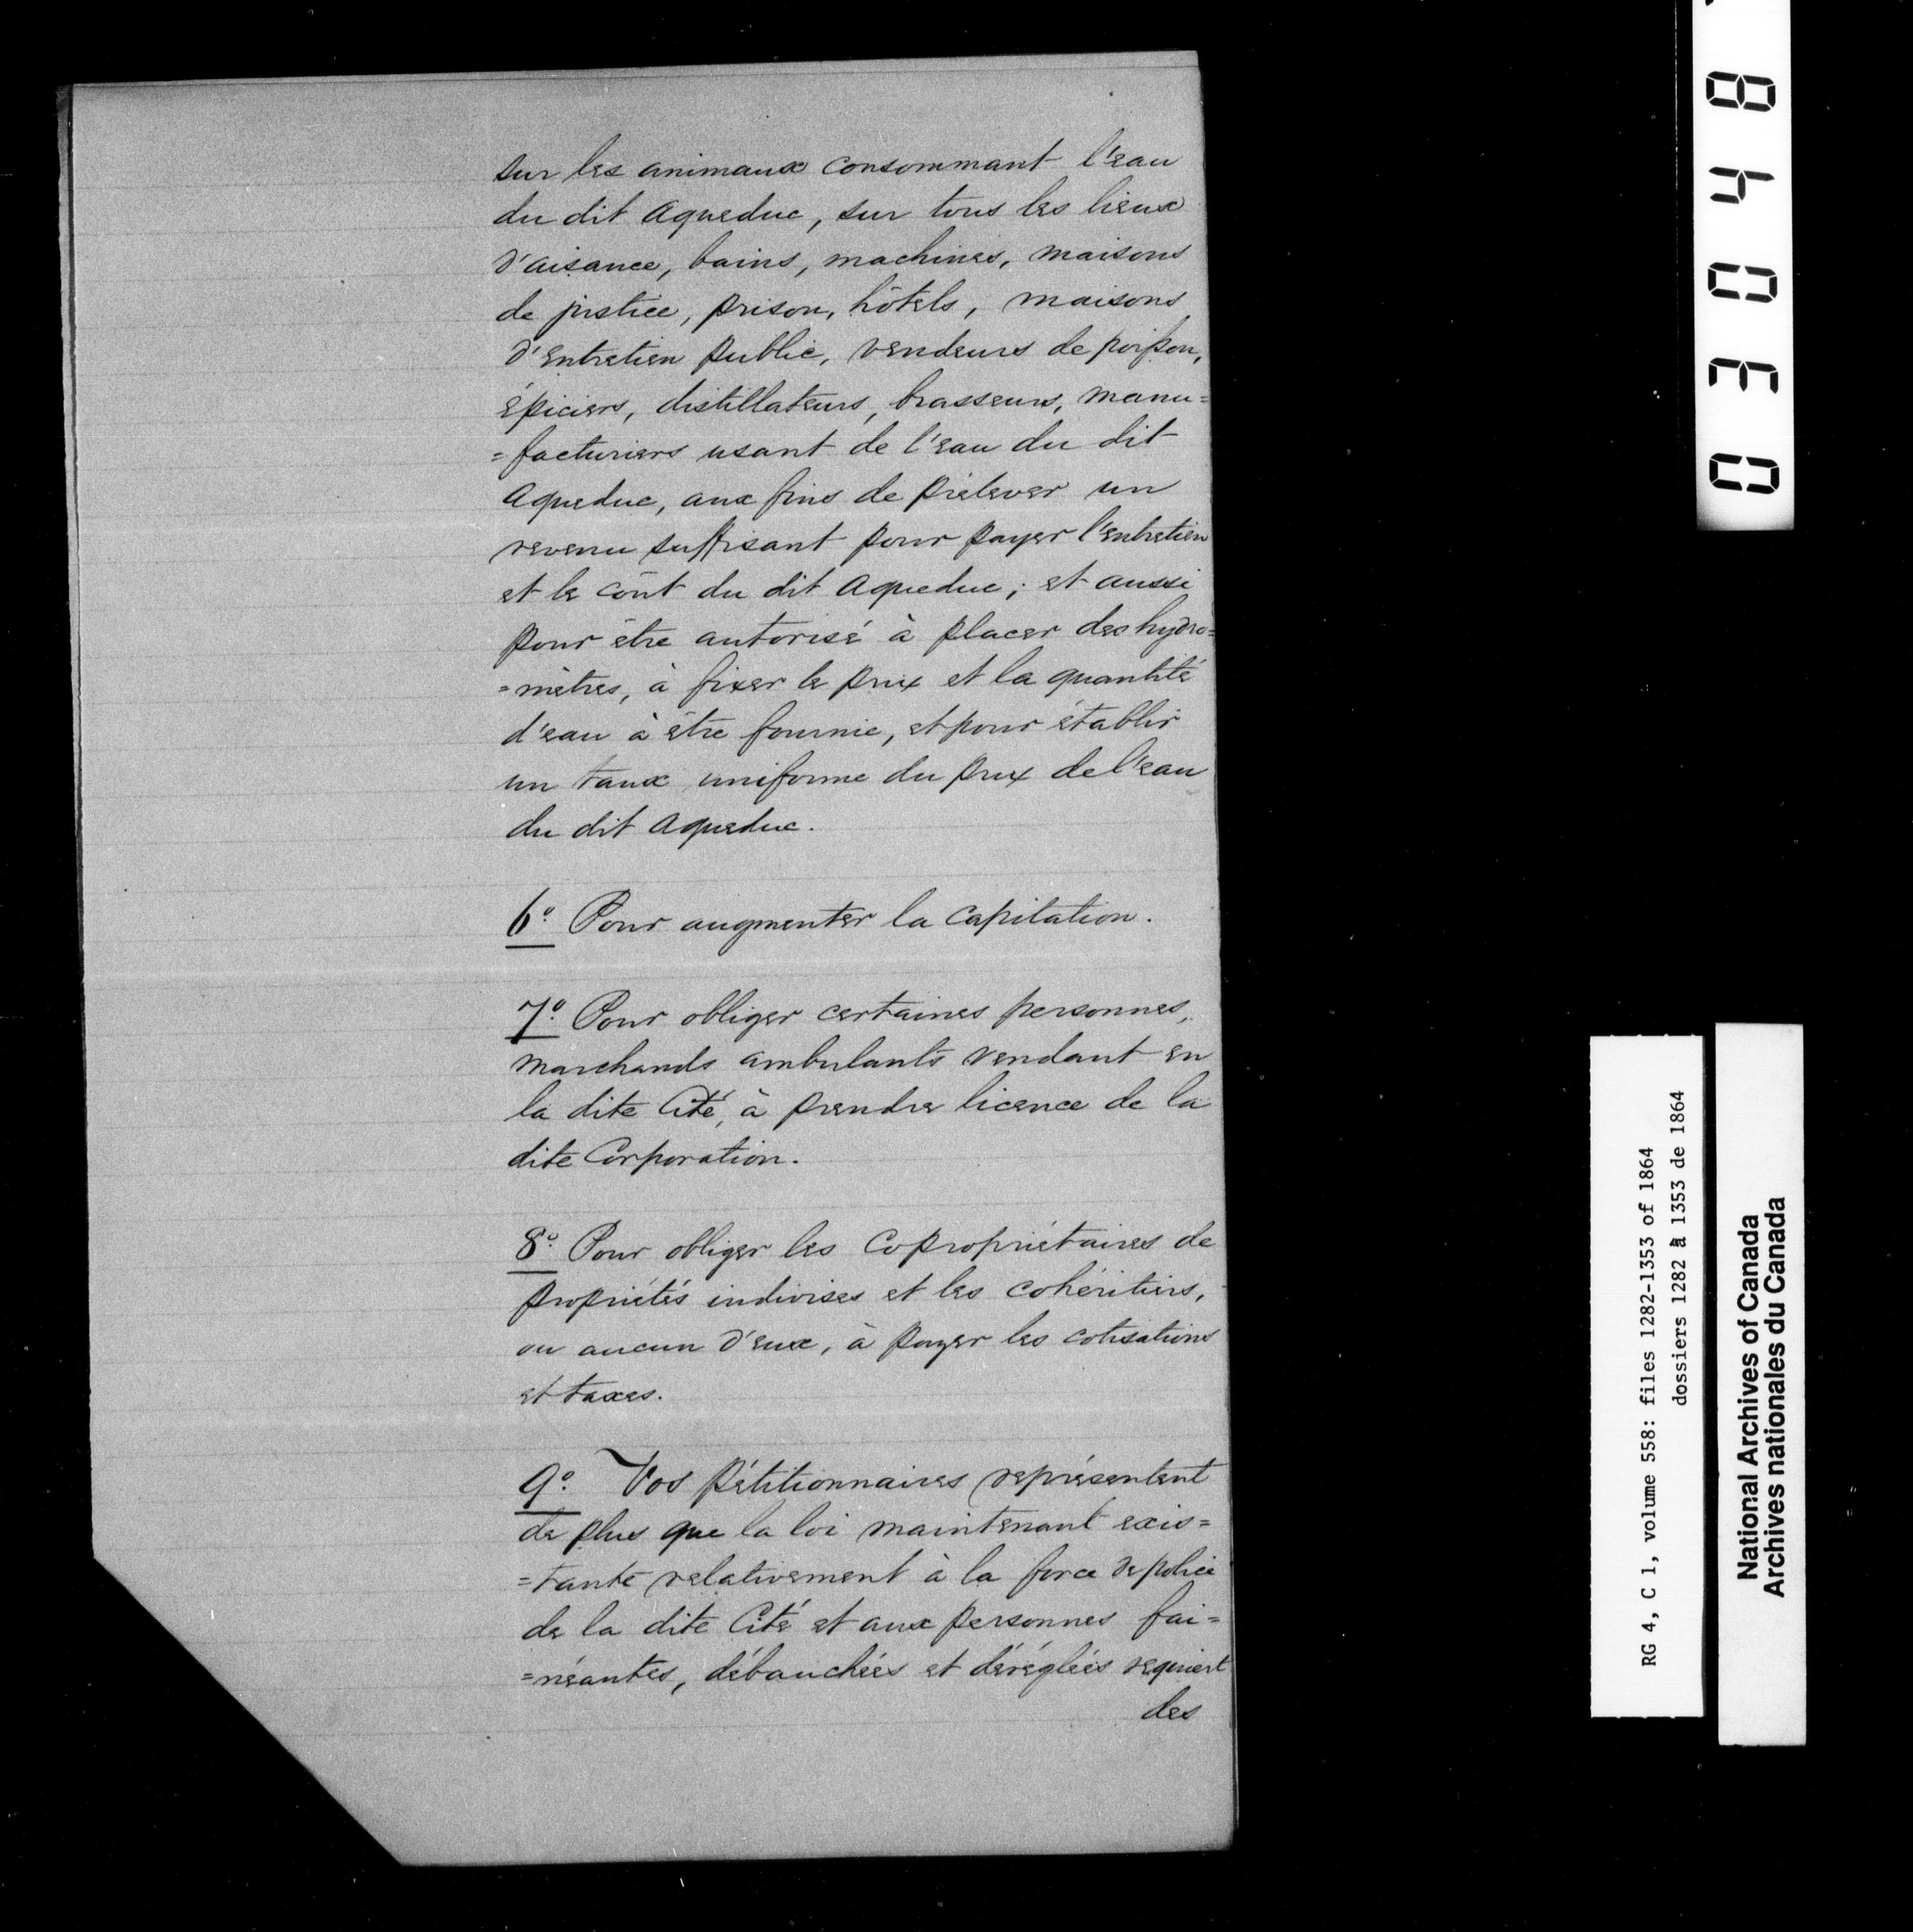 sur les animaux consommant l'eau
du dit Aqueduc, sur tous les lieux
d'aisance, bains, machines, maisons
de justice, prison, hôtels, maisons
d'Entretien public, vendeurs de poisson,
Épiciers, distillateurs, brasseurs, manu=
=facturiers usant de l'eau du dit
Aqueduc, aux fins de prélever un
revenu suffisant pour payer l'entretien
et le coût du dit Aqueduc; et aussi
pour être autorisé à placer des hydro=
=mètres, à fixer le prix et la quantité
d'eau à être fournie, et pour établir
un taux uniforme du prix de l'eau
du dit Aqueduc.
6º Pour augmenter la Capitation.
7º Pour obliger certaines personnes,
marchands ambulants vendant en
la dite Cité, à prendre licence de la
dite Corporation.
8º Pour obliger les Copropriétaires de
propriétés indivises et les cohéritiers,
ou aucun d'eux, à payer les cotisations
et taxes.
9º Vos Pétitionnaires représentent
de plus que la loi maintenant exis=
=tante relativement à la force de police
de la dite Cité et aux personnes fai=
=néantes, débauchées et déréglées requiert
des
03048
RG 4, C 1, volume 558: files 1282-1353 of 1864
dossiers 1282 à 1353 de 1864
National Archives of Canada
Archives nationales du Canada